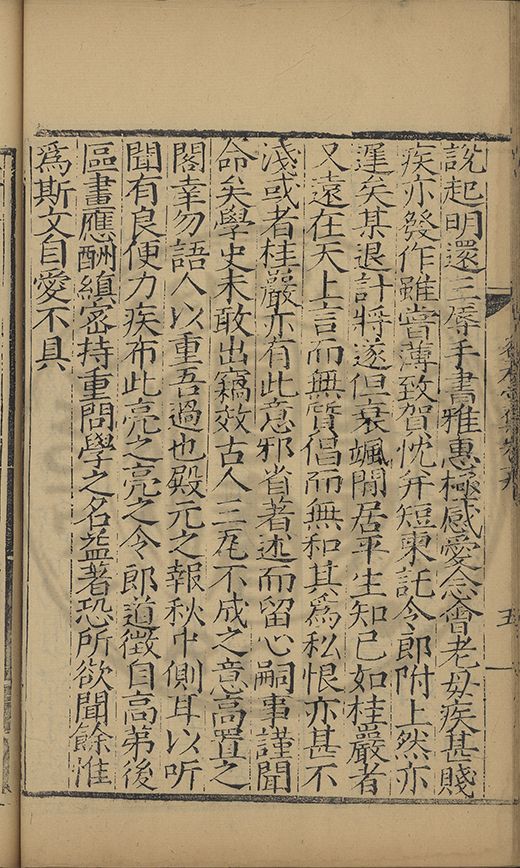 說起明還三辱手書雅惠極感愛念會老母疾甚賤
疾亦發作雖嘗薄致賀忱幷短柬託令郎附上然亦
遲矣某退計將遂但衰颯閒居平生知已如桂嚴者
又遠在天上言而無質倡而無和其爲私恨亦甚不
淺或者桂嚴亦有此意邪省著述而留心嗣事謹聞
命矣學史未敢出竊效古人三瓦不成之意高置之
閣幸勿語人以重吾過也殿元之報秋中側耳以听
聞有良便力疾布此亮之亮之令郎道徵自高第後
區畫應酬縝密持重問學之名益著恐所欲聞餘惟
爲斯文自愛不具
五